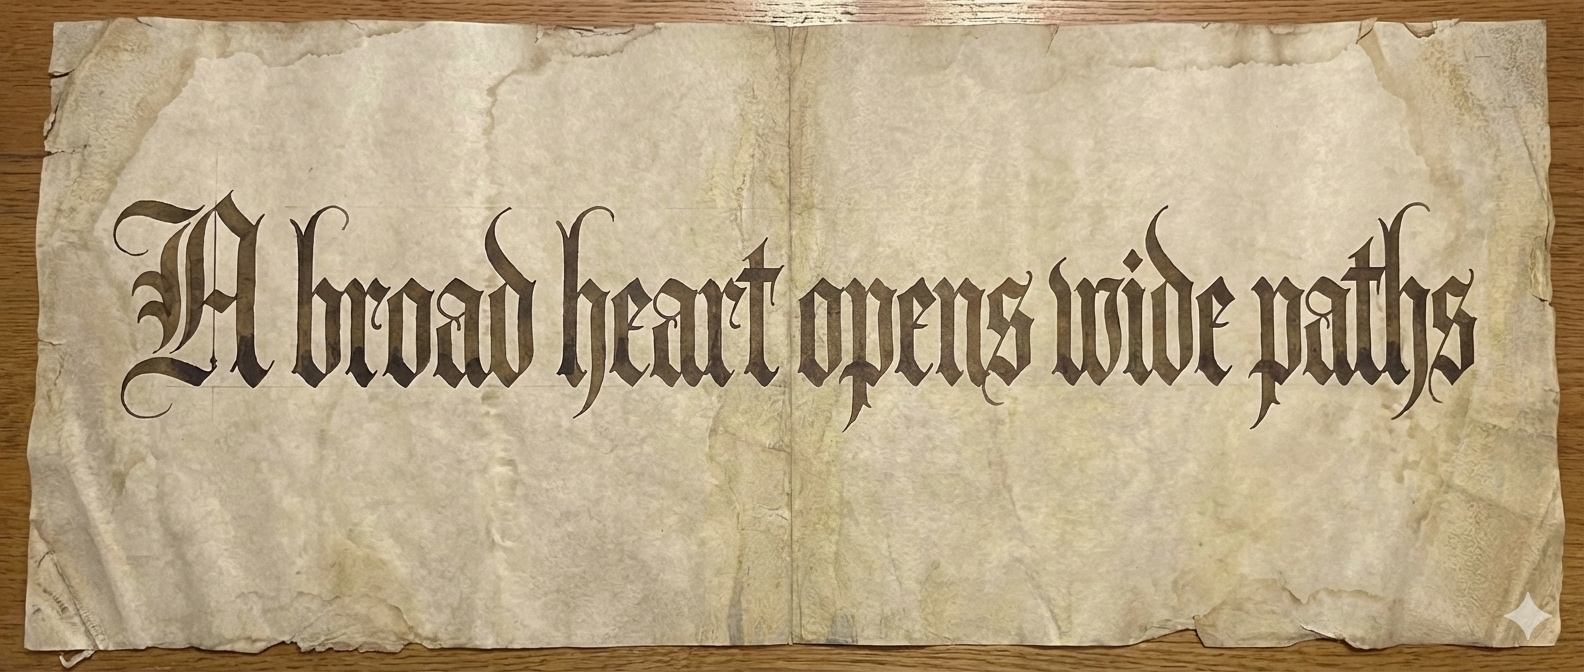 A broad heart opens wide paths